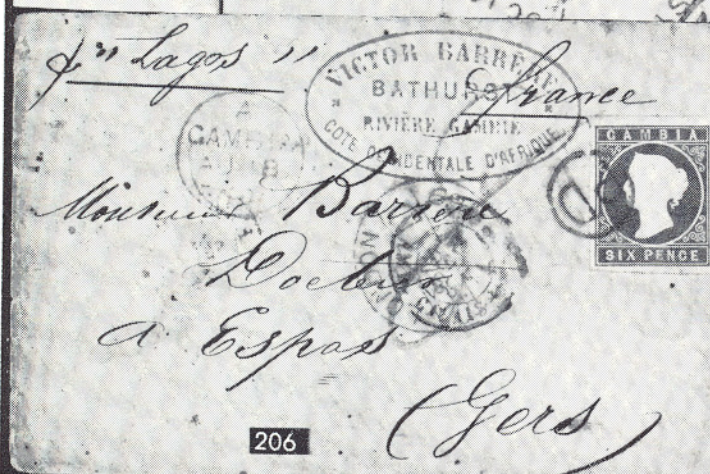 pr "Lagos"
VICTOR BARRÈRE
BATHURST
RIVIÈRE GAMBIE
COTE OCCIDENTALE D'AFRIQUE
France
A
GAMBIA
AU 8
GAMBIA
SIX PENCE
Monsieur Barrère
Docteur
a Espas
(Gers)
LONDON
206